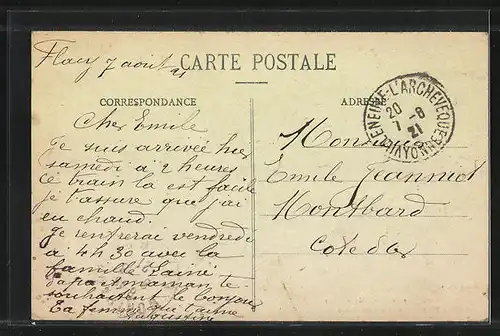 Flacy 7 août 21
CARTE POSTALE
CORRESPONDANCE
ADRESSE
VILLENEUVE-L'ARCHEVEQUE YONNE
20
7 -8
21
Cher Emile
Je suis arrivée hier
samedi a 2 heures
ce train la est facile
je t'assure que j'ai
eu chaud.
Je rentrerai vendredi
a 4h 30 avec la
famille
papa et maman te
souhaitent le bonjour
Ta femme qui t'aime
Monsieur
Emile Jeanniot
Montbard
Cote d'Or